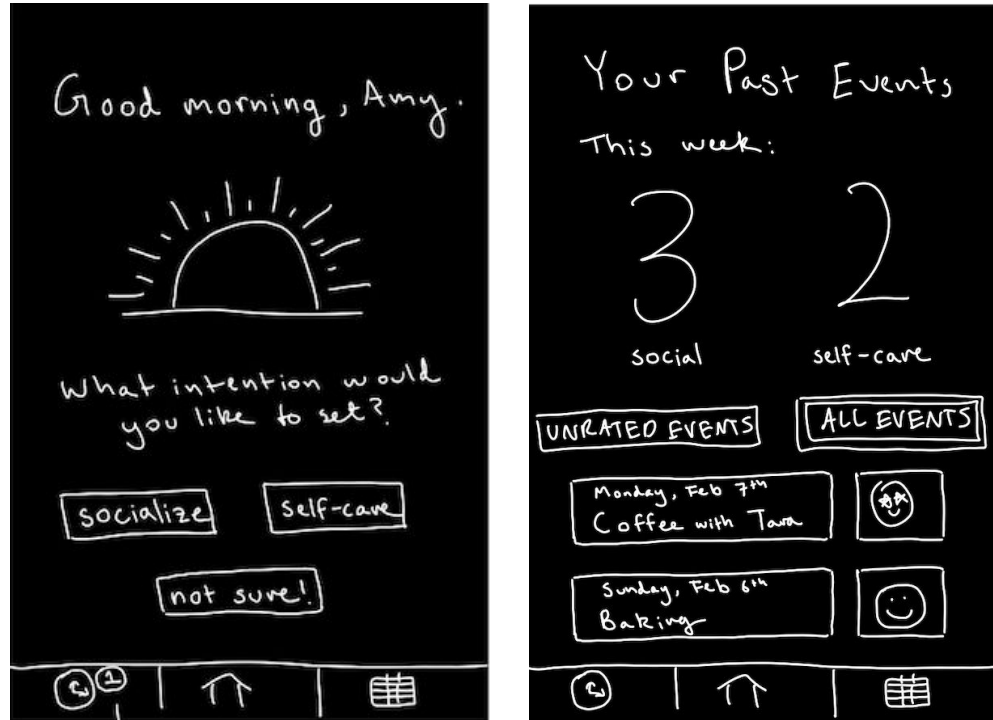 Good morning, Amy.
What intention would
you like to set?
socialize
self-care
not sure!
1
Your Past Events
This week:
3 2
social self-care
UNRATED EVENTS ALL EVENTS
Monday, Feb 7th
Coffee with Tara
Sunday, Feb 6th
Baking